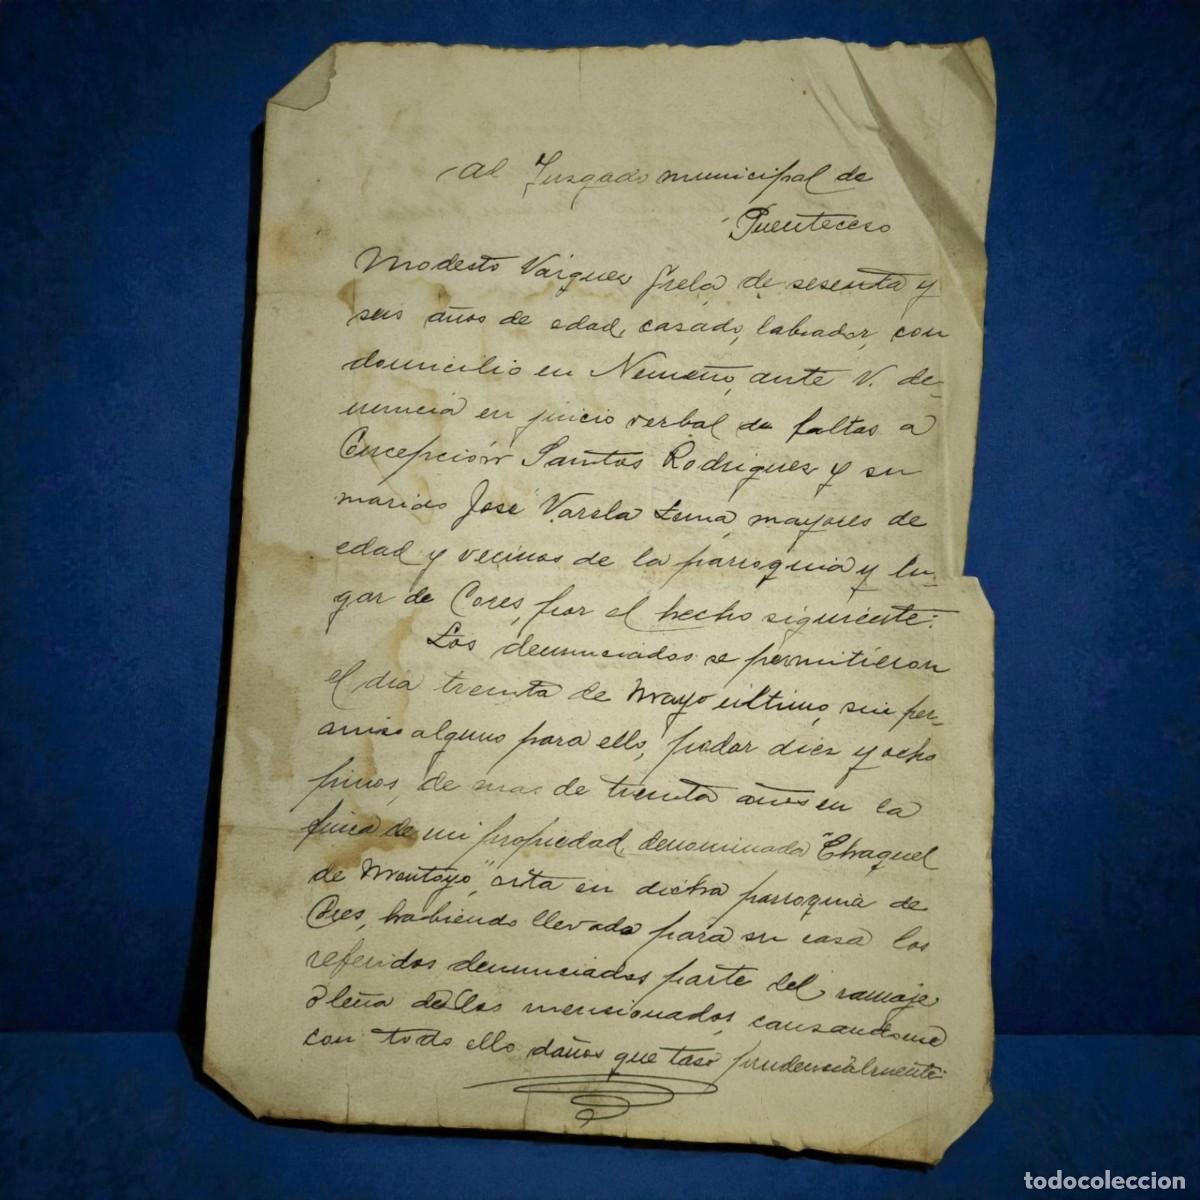 Al Juzgado municipal de
Puenteceso
Modesto Vázquez Trela, de sesenta y
seis años de edad, casado, labrador, con
domicilio en Nemeño, ante V. de-
nuncia en juicio verbal de faltas a
Concepción Santos Rodriguez y su
marido José Varela Lema, mayores de
edad y vecinos de la parroquia y lu-
gar de Cores, por el hecho siguiente:
Los denunciados se permitieron
el día treinta de Mayo último, sin per-
miso alguno para ello, podar diez y ocho
pinos, de mas de treinta años en la
finca de mi propiedad, denominada "Chaquel
de Montoyo", sita en dicha parroquia de
Cores, habiendo llevado para su casa los
referidos denunciados parte del ramaje
ó leña de los mencionados, causandome
con todo ello daños que taso prudencialmente
todocoleccion